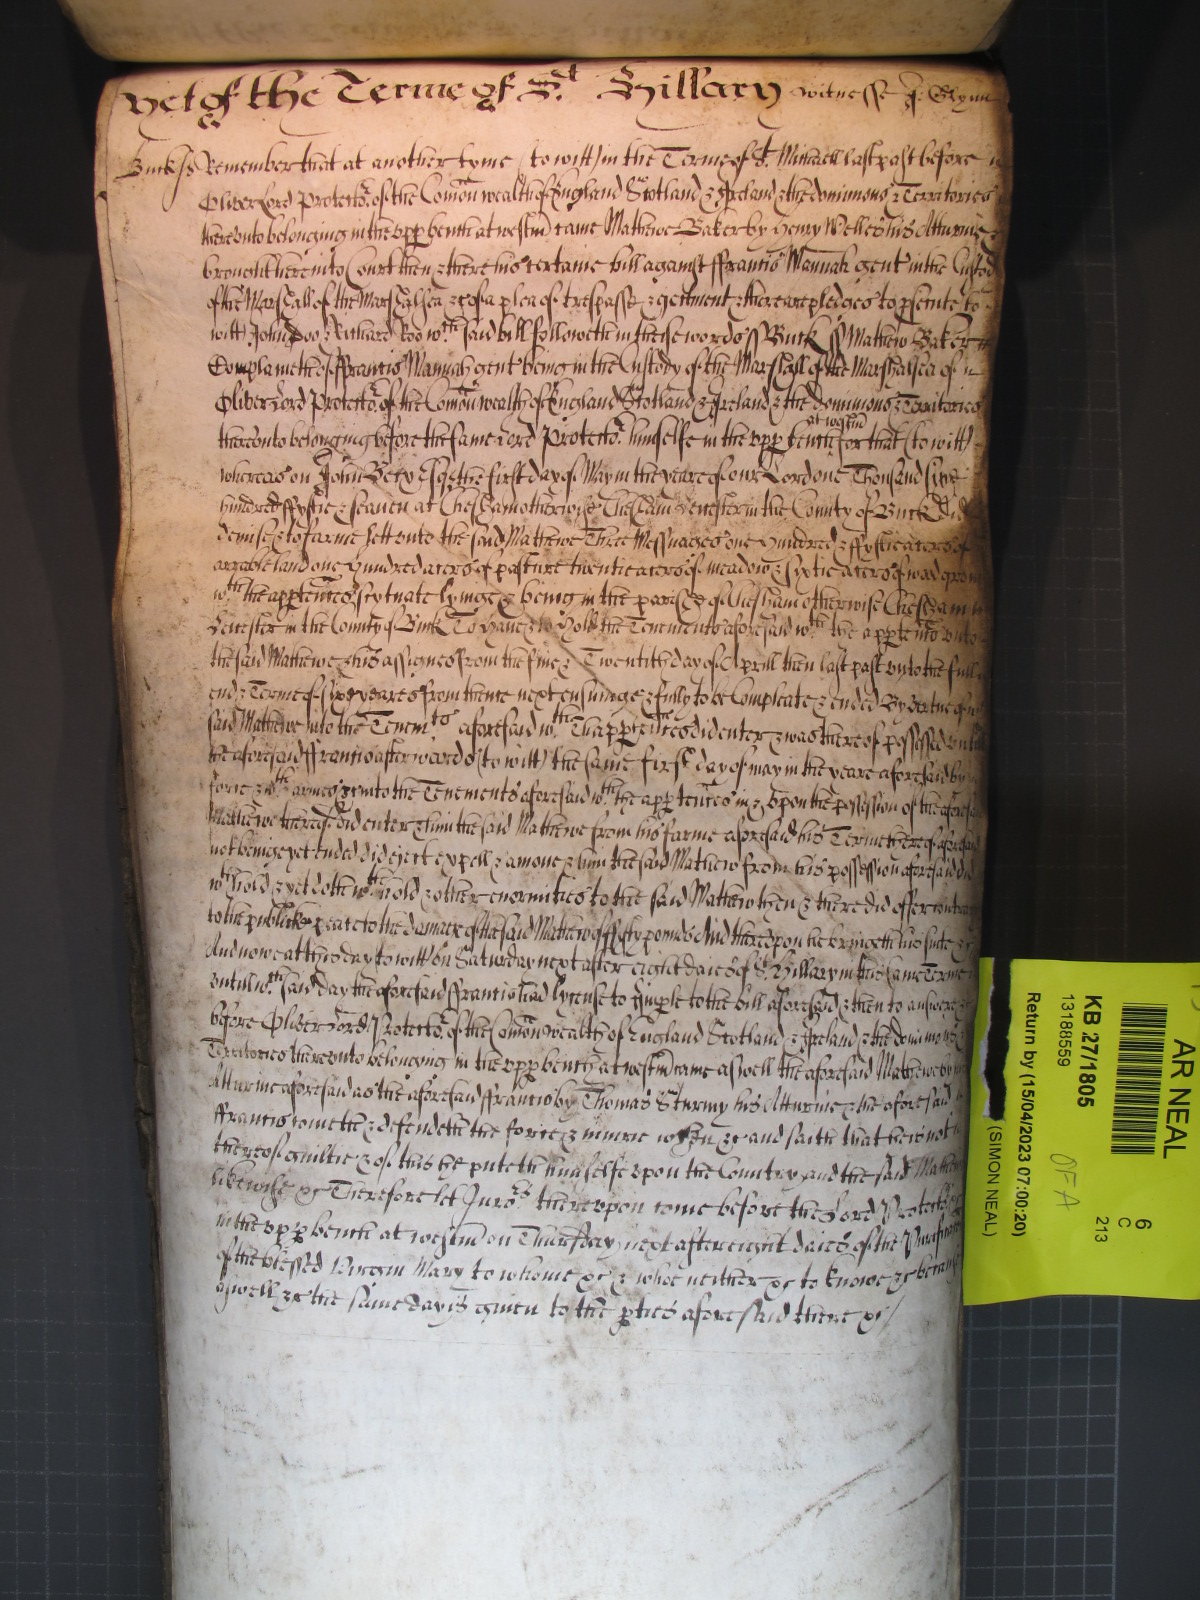 yet of the Terme of St. Hillary witnesse J. Glynn
Buck ss Remember that at another tyme (to witt) in the Terme of St. Michaell last past before
Oliver Lord Protector. of the Comonwealth of England Scotland & Ireland & the dominions & Territories
thereunto belonging in the upp bench at westm came Mathewe Baker by Henry Welles his Atturnie &
brought here into Court then & there his certaine bill against ffrancis Mannah gent in the Custod
of the Marshall of the Marshalsea &c of a plea of trespasse & eiectment & there are pledges to psecute to
witt John Doo & Richard Roo wch. said bill followeth in these wordes ss Buck ss Mathew Baker
Complaineth of ffrancis Mannah gent being in the Custody of the Marshall of the Marshalsea of
Oliver Lord Protector. of the Comonwealth of England Scotland & Ireland & the dominions & Territories
thereunto belonging before the same Lord Protector. himselfe in the upp bench at westm for that (to witt)
whereas on John Esq the first day of May in the yeare of our Lord one Thousand sixe
hundred ffyftie & seaven at Chesham otherwise Chesham Leicester in the County of Buck did
demise & to farme lett unto the said Mathewe Three Messuages one hundred & ffyftie acres of
arrable land one hundred acres of pasture twentie acres of meadow & sixtie acres of wood
wth. the apptences scytuate lyinge & being in the parishe of Chesham otherwise Chesham
Leicester in the County of Buck To Have & to Hold the Tenements aforesaid wth. the apptences unto
the said Mathewe & his assignes from the five & Twentith day of Aprill then last past unto the full
end & Terme of syxe yeares from thence next ensuinge & fully to be Compleate & ended By vertue
said Mathewe into the Tenemts aforesaid wth. Thapptences did enter & was thereof possessed untill
the aforesaid ffrancis afterwards (to witt) the same first day of may in the yeare aforesaid by
force & wth armes &c into the Tenements aforesaid wth the apptences in & upon the possession of the
Mathewe thereof did enter & him the said Mathewe from his farme aforesaid his Terme thereof aforesaid
not beinge yet ended did eiect expell & amove & him the said Mathew from his possession aforesaid did
wth hold & yet doth wth hold & other enormities to the said Mathew then & there did offer
to the publicke peace to the damage of the said Mathew of ffyfty pounds And thereupon he bringeth his suite &c
And now at this day to witt on Saturday next after eight daies of St. Hillary in this same Terme
untill wch. said day the aforesaid ffrancis had lycense to imple to the bill aforesaid & then to answere &c
before Oliver Lord Protector. of the Comonwealth of England Scotland & Ireland & the dominions &
Territories thereunto belonging in the upp bench at westm came aswell the aforesaid Mathewe by his
Atturnie aforesaid as the aforesaid ffrancis by Thomas Sturmy his Atturnie & the aforesaid
ffrancis cometh & defendeth the force & iniurie when &c and saith that he is not
thereof guiltie & of this he puteth himselfe upon the Country and the said Mathew
likewise &c Therefore let Jurors thereupon come before the Lord Protector
in the upp bench at westm on Thursday next after eight daies of the
of the blessed Virgin Mary to whome &c & whoe neither &c to knowe &c because
aswell &c the same day is given to the pties aforesaid there &c/
AR NEAL
KB 27/1805
13188559
Return by (15/04/2023 07:00:20)
(SIMON NEAL)
OFA
6
C
213